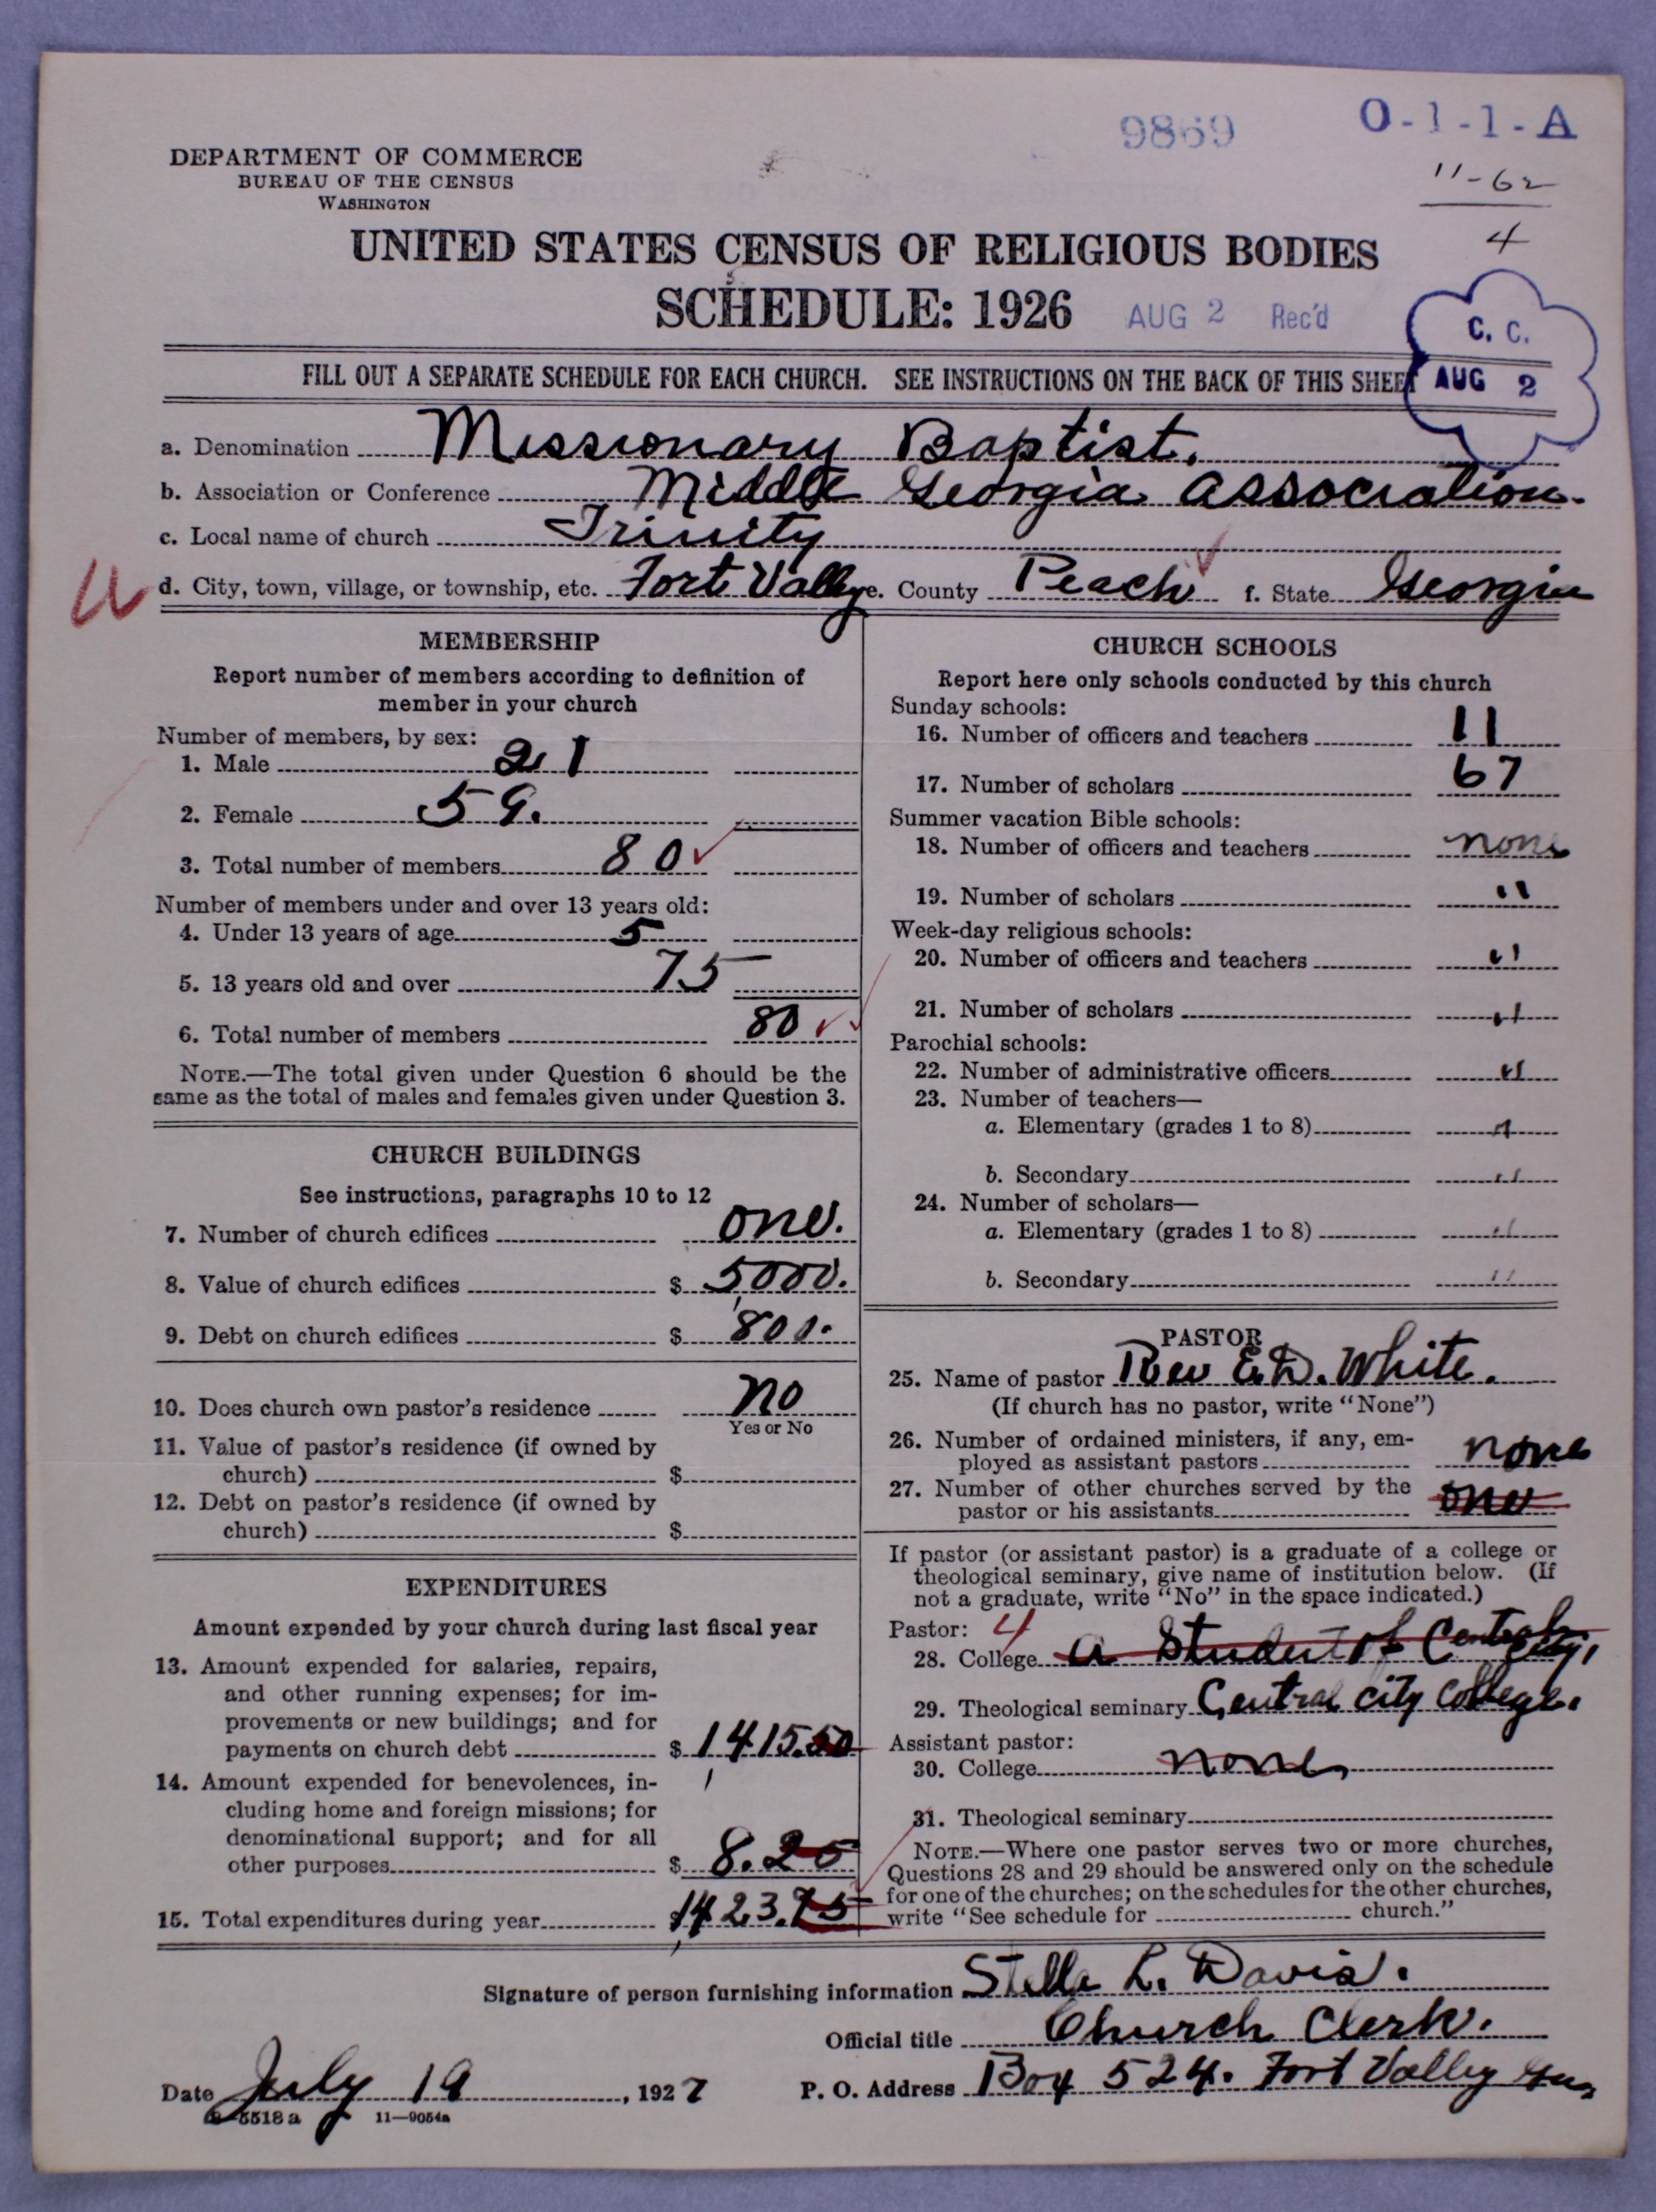 9869
O-1-1-A
11-62
4
DEPARTMENT OF COMMERCE
BUREAU OF THE CENSUS
WASHINGTON
UNITED STATES CENSUS OF RELIGIOUS BODIES
SCHEDULE: 1926
AUG 2 Rec'd
C. C.
AUG 2
FILL OUT A SEPARATE SCHEDULE FOR EACH CHURCH. SEE INSTRUCTIONS ON THE BACK OF THIS SHEET
a. Denomination Missionary Baptist.
b. Association or Conference Middle Georgia Association.
c. Local name of church Trinity
d. City, town, village, or township, etc. Fort Valley e. County Peach f. State Georgia
MEMBERSHIP
Report number of members according to definition of
member in your church
Number of members, by sex:
1. Male 21
2. Female 59.
3. Total number of members 80
Number of members under and over 13 years old:
4. Under 13 years of age 5
5. 13 years old and over 75
6. Total number of members 80
NOTE.—The total given under Question 6 should be the
same as the total of males and females given under Question 3.
CHURCH BUILDINGS
See instructions, paragraphs 10 to 12
7. Number of church edifices one.
8. Value of church edifices $ 5,000.
9. Debt on church edifices $ 800.
10. Does church own pastor's residence no
Yes or No
11. Value of pastor's residence (if owned by
church) $
12. Debt on pastor's residence (if owned by
church) $
EXPENDITURES
Amount expended by your church during last fiscal year
13. Amount expended for salaries, repairs,
and other running expenses; for im-
provements or new buildings; and for
payments on church debt $ 1,415.50
14. Amount expended for benevolences, in-
cluding home and foreign missions; for
denominational support; and for all
other purposes $ 8.25
15. Total expenditures during year $ 1,423.75
CHURCH SCHOOLS
Report here only schools conducted by this church
Sunday schools:
16. Number of officers and teachers 11
17. Number of scholars 67
Summer vacation Bible schools:
18. Number of officers and teachers none
19. Number of scholars "
Week-day religious schools:
20. Number of officers and teachers "
21. Number of scholars "
Parochial schools:
22. Number of administrative officers "
23. Number of teachers—
a. Elementary (grades 1 to 8) "
b. Secondary "
24. Number of scholars—
a. Elementary (grades 1 to 8) "
b. Secondary "
PASTOR
25. Name of pastor Rev E.D. White.
(If church has no pastor, write "None")
26. Number of ordained ministers, if any, em-
ployed as assistant pastors none
27. Number of other churches served by the
pastor or his assistants one
If pastor (or assistant pastor) is a graduate of a college or
theological seminary, give name of institution below. (If
not a graduate, write "No" in the space indicated.)
Pastor: 4
28. College a Student of Central City,
29. Theological seminary Central City College.
Assistant pastor:
30. College none
31. Theological seminary
NOTE.—Where one pastor serves two or more churches,
Questions 28 and 29 should be answered only on the schedule
for one of the churches; on the schedules for the other churches,
write "See schedule for church."
Signature of person furnishing information Stella L. Davis.
Official title Church Clerk.
Date July 19, 1927
P. O. Address Box 524. Fort Valley Ga
11—9054a